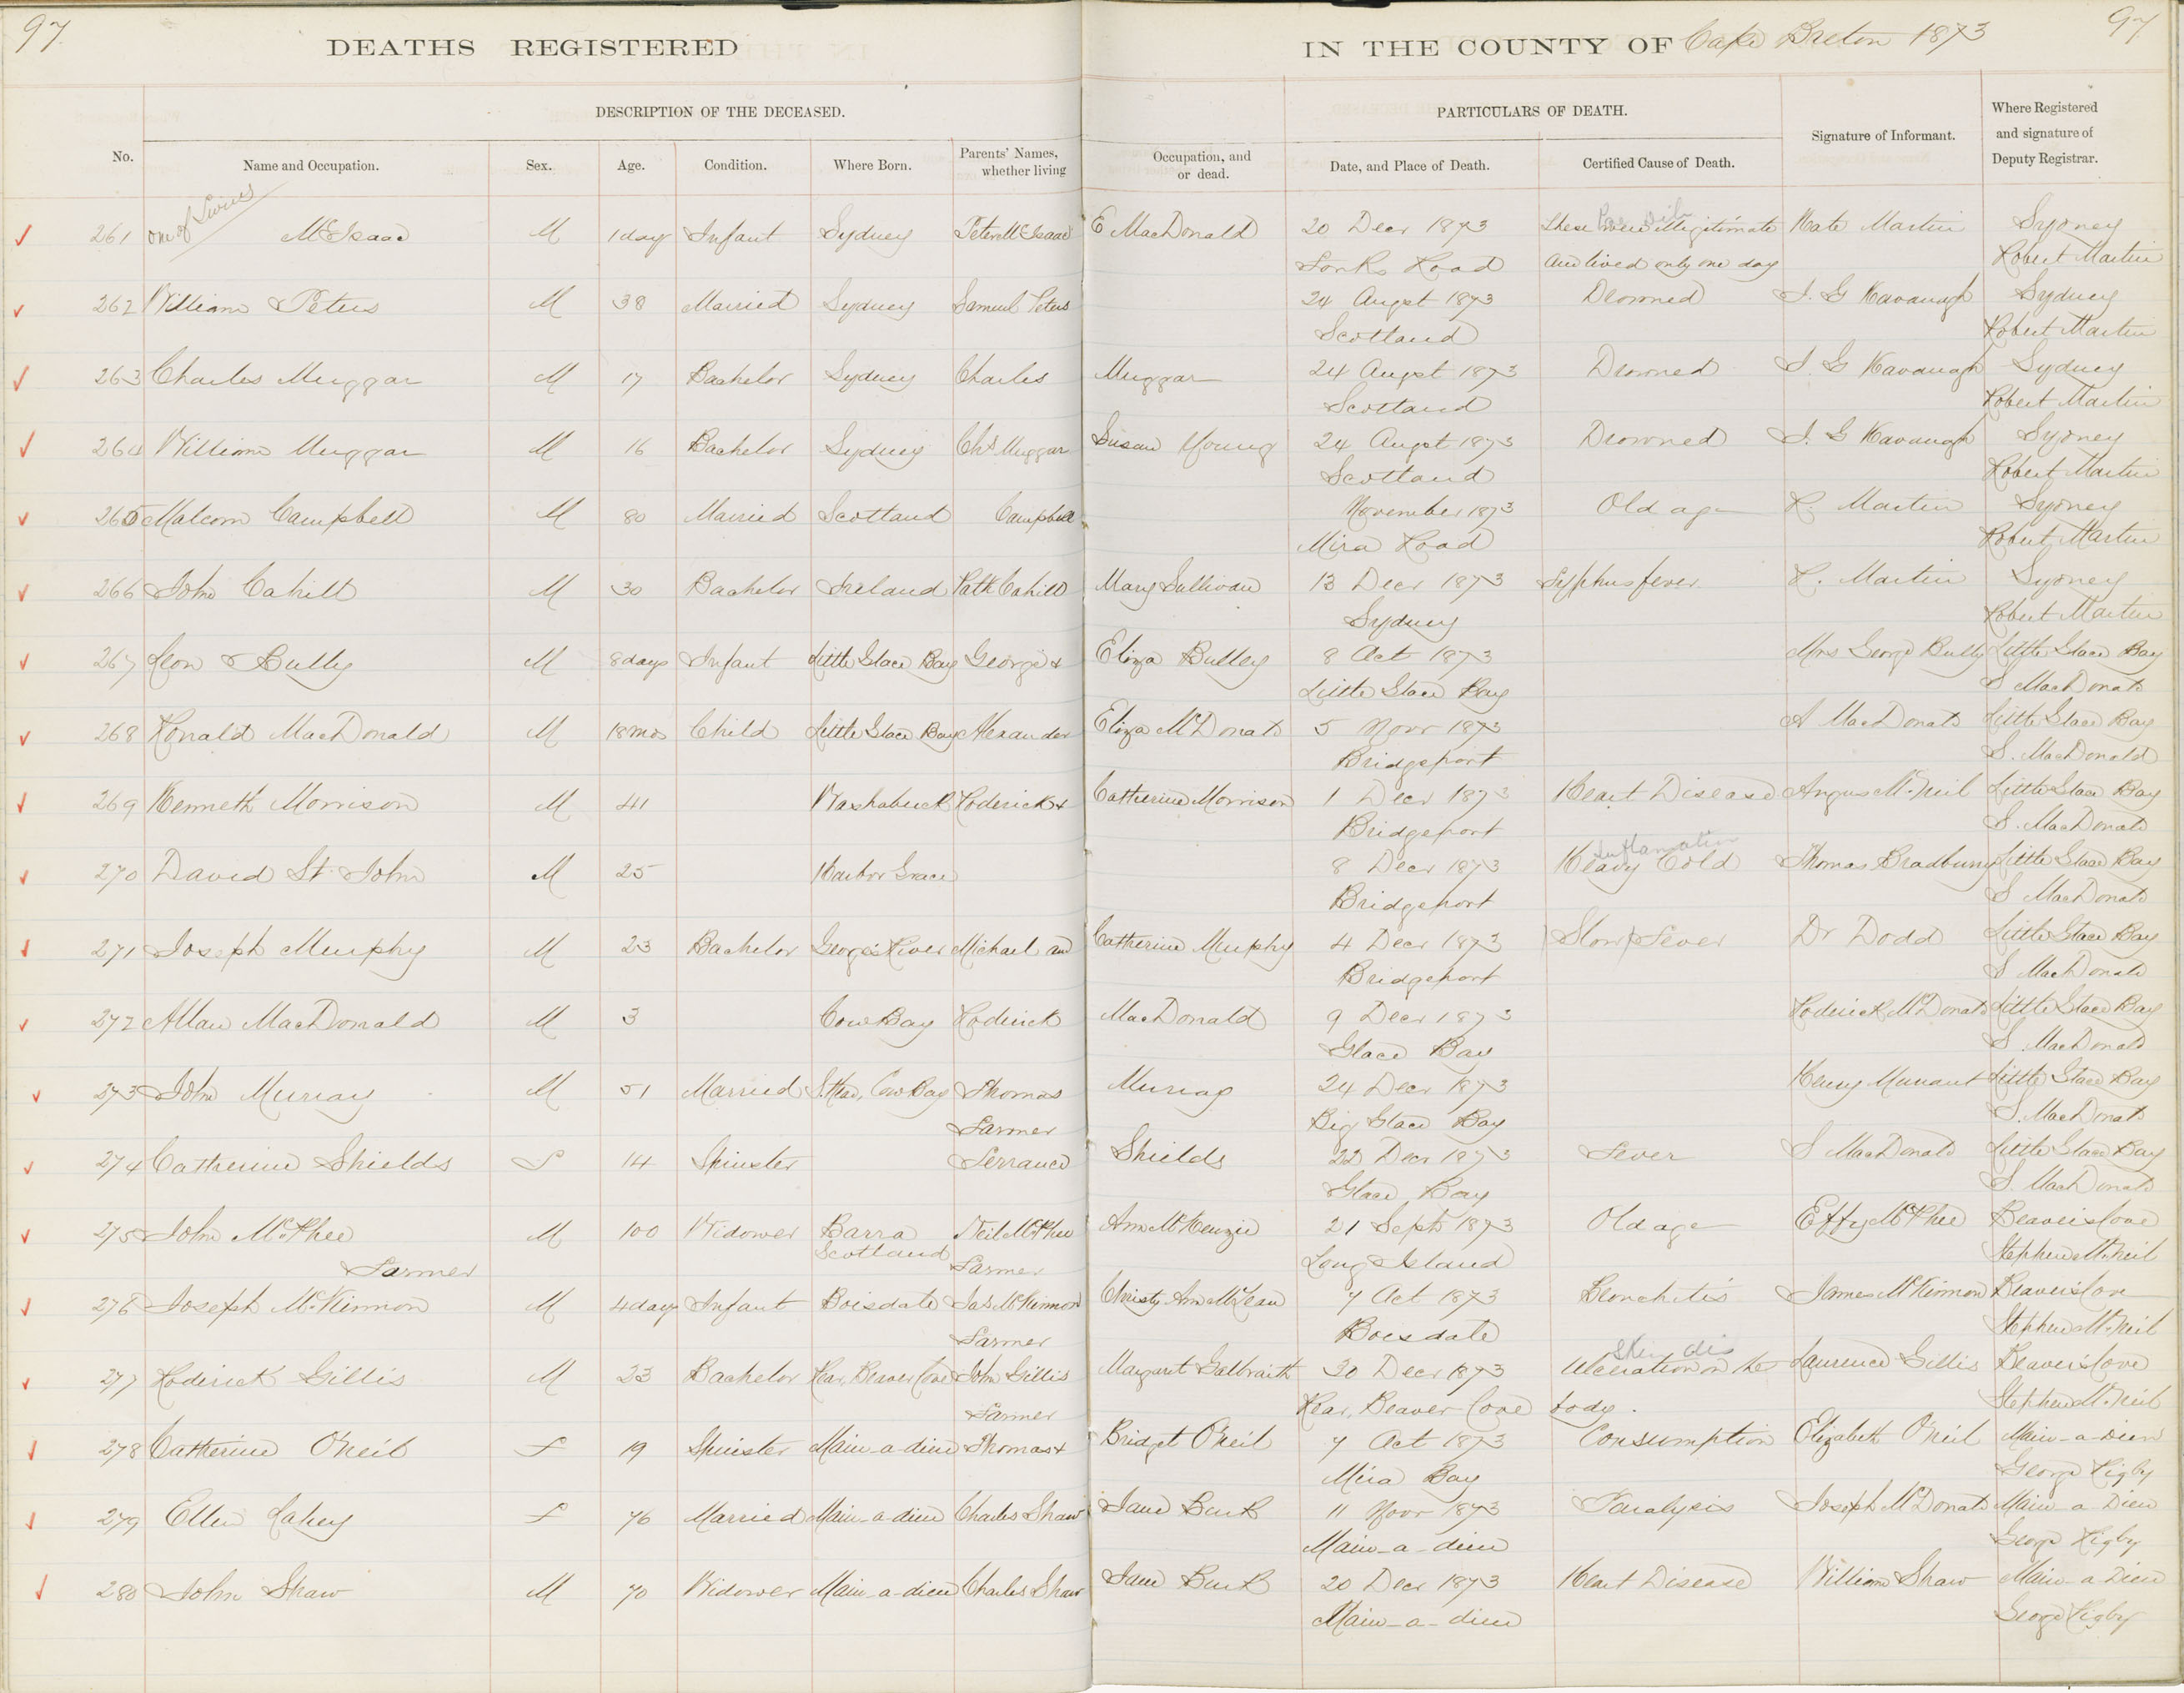 97
97
DEATHS REGISTERED IN THE COUNTY OF Cape Breton 1873
DESCRIPTION OF THE DECEASED. PARTICULARS OF DEATH.
No. Name and Occupation. Sex. Age. Condition. Where Born. Parents' Names, whether living Occupation, and or dead. Date, and Place of Death. Certified Cause of Death. Signature of Informant. Where Registered and signature of Deputy Registrar.
261 one of Twins McIsaac M 1 day Infant Sydney Peter McIsaac E MacDonald 20 Decr 1873 These were illigitimate Kate Martin Sydney
Road and lived only one day Robert Martin
262 William Peters M 38 Married Sydney Samuel Peters 24 Augst 1873 Drowned J. G Kavanagh Sydney
Scotland Robert Martin
263 Charles Muggar M 17 Bachelor Sydney Charles Muggar 24 Augst 1873 Drowned J. G Kavanagh Sydney
Scotland Robert Martin
264 William Muggar M 16 Bachelor Sydney Chs Muggar Susan Young 24 Augst 1873 Drowned J. G Kavanagh Sydney
Scotland Robert Martin
265 Malcom Campbell M 80 Married Scotland Campbell November 1873 Old age R. Martin Sydney
Mira Road Robert Martin
266 John Cahill M 30 Bachelor Ireland Patk Cahill Mary Sullivan 13 Decr 1873 Typhus fever. R. Martin Sydney
Sydney Robert Martin
267 Leon Bully M 8 days Infant Little Glace Bay George & Eliza Bulley 8 Oct 1873 Mrs George Bully Little Glace Bay
Little Glace Bay S MacDonald
268 Ronald MacDonald M 18 mos Child Little Glace Bay Alexander Eliza McDonald 5 Novr 1873 A MacDonald Little Glace Bay
Bridgeport S. MacDonald
269 Kenneth Morrison M 41 Washabuck Roderick & Catherine Morrison 1 Decr 1873 Heart Disease Angus McNeil Little Glace Bay
Bridgeport S. MacDonald
Inflamation
270 David St John M 25 Harbor Grace 8 Decr 1873 Heavy Cold Thomas Bradbury Little Glace Bay
Bridgeport S MacDonald
271 Joseph Murphy M 23 Bachelor George's River Michael and Catherine Murphy 4 Decr 1873 Slow Fever Dr Dodd Little Glace Bay
Bridgeport S MacDonald
272 Allan MacDonald M 3 Cow Bay Roderick MacDonald 9 Decr 1873 Roderick McDonald Little Glace Bay
Glace Bay S. MacDonald
273 John Murray M 51 Married Cow Bay Thomas Murray 24 Decr 1873 Henry Little Glace Bay
Farmer Big Glace Bay S. MacDonald
274 Catherine Shields F 14 Spinster Terrance Shields 22 Decr 1873 Fever S MacDonald Little Glace Bay
Glace Bay S. MacDonald
275 John McPhee M 100 Widower Barra Neil McPhee Ann McKenzie 21 Sept 1873 Old age Effy McPhee Beaver's Cove
Farmer Scotland Farmer Long Island Stephen McNeil
276 Joseph McKinnon M 4 days Infant Boisdale Jas McKinnon Christy Ann McLean 7 Oct 1873 Bronchitis James McKinnon Beaver's Cove
Farmer Boisdale Stephen McNeil
Skin dis
277 Roderick Gillis M 23 Bachelor Rear, Beaver Cove John Gillis Margaret Galbraith 30 Decr 1873 Ulceration on the Laurence Gillis Beaver's Cove
Farmer Rear, Beaver Cove body. Stephen McNeil
278 Catherine O'Neil F 19 Spinster Main-a-dieu Thomas & Bridget O'Neil 7 Oct 1873 Consumption Elizabeth O'Neil Main-a-Dieu
Mira Bay George Rigby
279 Ellen Lahey F 76 Married Main-a-dieu Charles Shaw Jane Burk 11 Novr 1873 Paralysis Joseph McDonald Main-a-Dieu
Main-a-dieu George Rigby
280 John Shaw M 70 Widower Main-a-dieu Charles Shaw Jane Burk 20 Decr 1873 Heart Disease William Shaw Main-a-Dieu
Main-a-dieu George Rigby